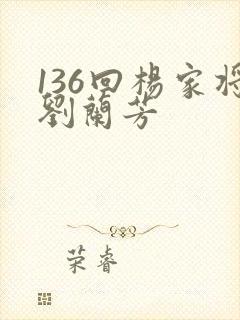 136回楊家将
劉蘭芳
荣睿